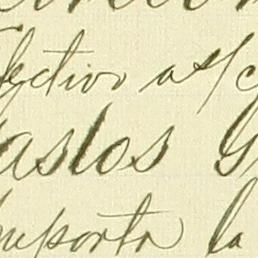 Efectivo a s/c
astos G
mporta la